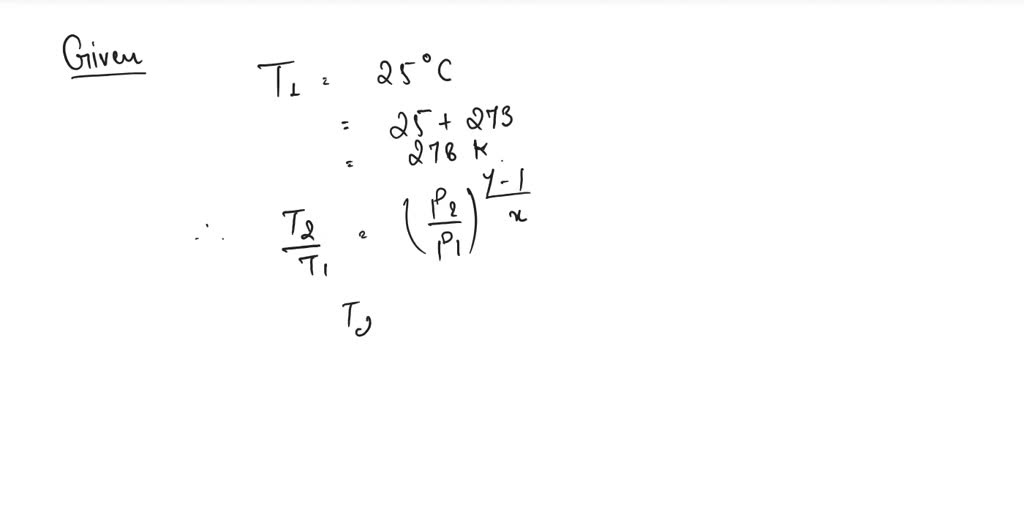 Given
T₁ = 25°C
= 25 + 273
= 278 K
∴ T₂/T₁ = (P₂/P₁)^((γ-1)/x)
T₂